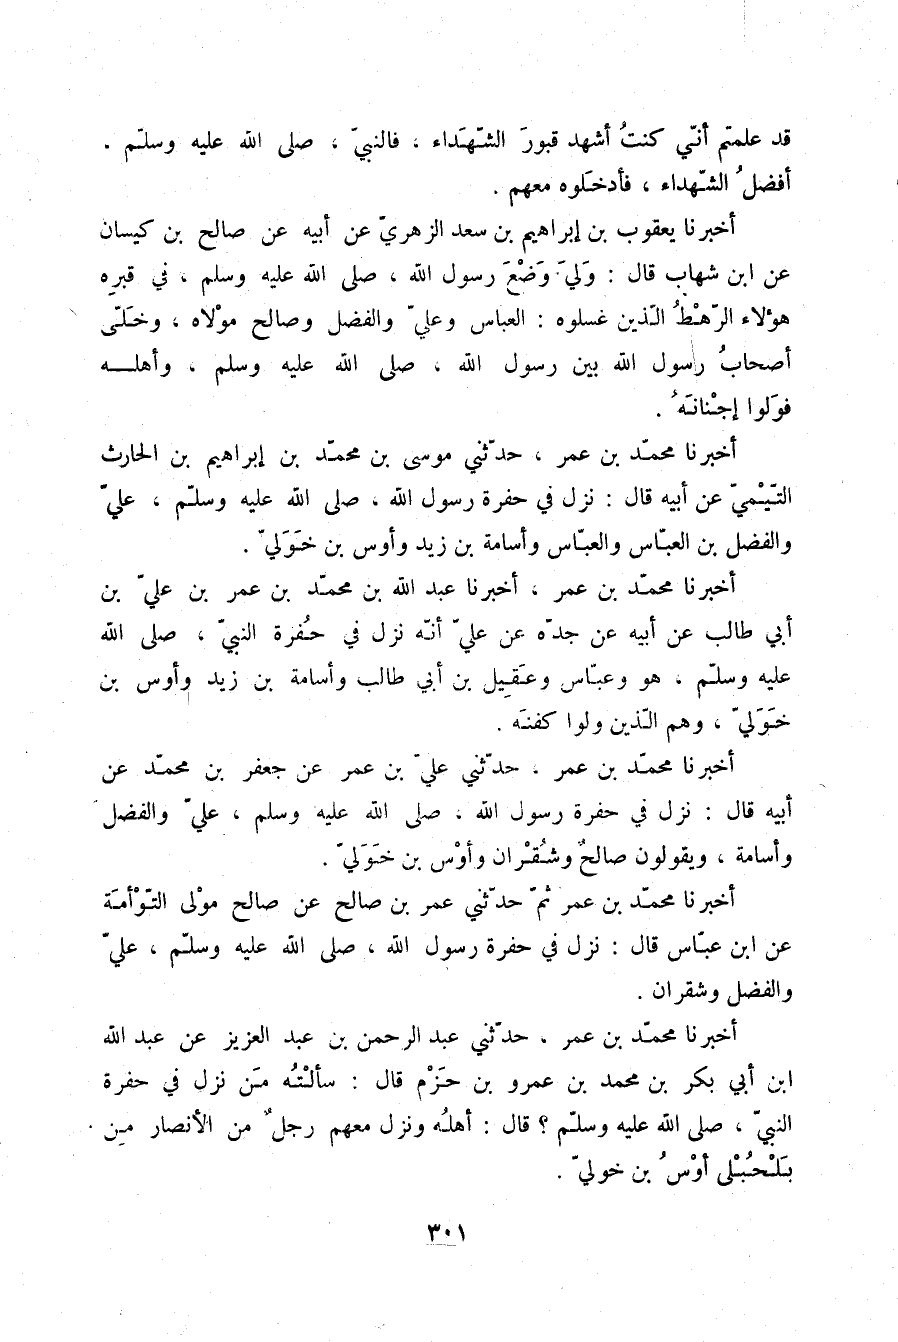 قد علمتم أنّي كنتُ أشهد قبورَ الشّهَداء ، فالنبيّ ، صلى الله عليه وسلّم .
أفضلُ الشّهداء ، فأدخَلوه معهم .
أخبرنا يعقوب بن إبراهيم بن سعد الزهريّ عن أبيه عن صالح بن كيسان
عن ابن شهاب قال : وَليَ وَضْعَ رسول الله ، صلى الله عليه وسلم ، في قبره
هوْلاء الرّهْطُ الّذين غسلوه : العباس وعليّ والفضل وصالح موْلاه ، وخَلّى
أصحابُ رسول الله بين رسول الله ، صلى الله عليه وسلم ، وأهلــه
فوَلوا إجْنانَهُ .
أخبرنا محمّد بن عمر ، حدّثني موسى بن محمّد بن إبراهيم بن الحارث
التّيْميّ عن أبيه قال : نزل في حفرة رسول الله ، صلى الله عليه وسلّم ، عليّ
والفضل بن العبّاس والعبّاس وأسامة بن زيد وأوس بن خَوَليّ .
أخبرنا محمّد بن عمر ، أخبرنا عبد الله بن محمّد بن عمر بن عليّ بن
أبي طالب عن أبيه عن جدّه عن عليّ أنّه نزل في حُفرة النبيّ ، صلى الله
عليه وسلّم ، هو وعبّاس وعَقِيل بن أبي طالب وأسامة بن زيد وأوس بن
خَوَليّ ، وهم الّذين ولوا كفنَه .
أخبرنا محمّد بن عمر ، حدّثني عليّ بن عمر عن جعفر بن محمّد عن
أبيه قال : نزل في حفرة رسول الله ، صلى الله عليه وسلم ، عليّ والفضل
وأسامة ، ويقولون صالحٌ وشُقْران وأوْس بن خَوَليّ .
أخبرنا محمّد بن عمر ثمّ حدّثني عمر بن صالح عن صالح موْلى التوْأمَة
عن ابن عبّاس قال : نزل في حفرة رسول الله ، صلى الله عليه وسلّم ، عليّ
والفضل وشقران .
أخبرنا محمّد بن عمر ، حدّثني عبد الرحمن بن عبد العزيز عن عبد الله
ابن أبي بكر بن محمد بن عمرو بن حَزْم قال : سألتُه مَن نزل في حفرة
النبيّ ، صلى الله عليه وسلّم ؟ قال : أهلُه ونزل معهم رجلٌ من الأنصار مِن
بَلْحُبْلى أوْسُ بن خوليّ .
٣٠١